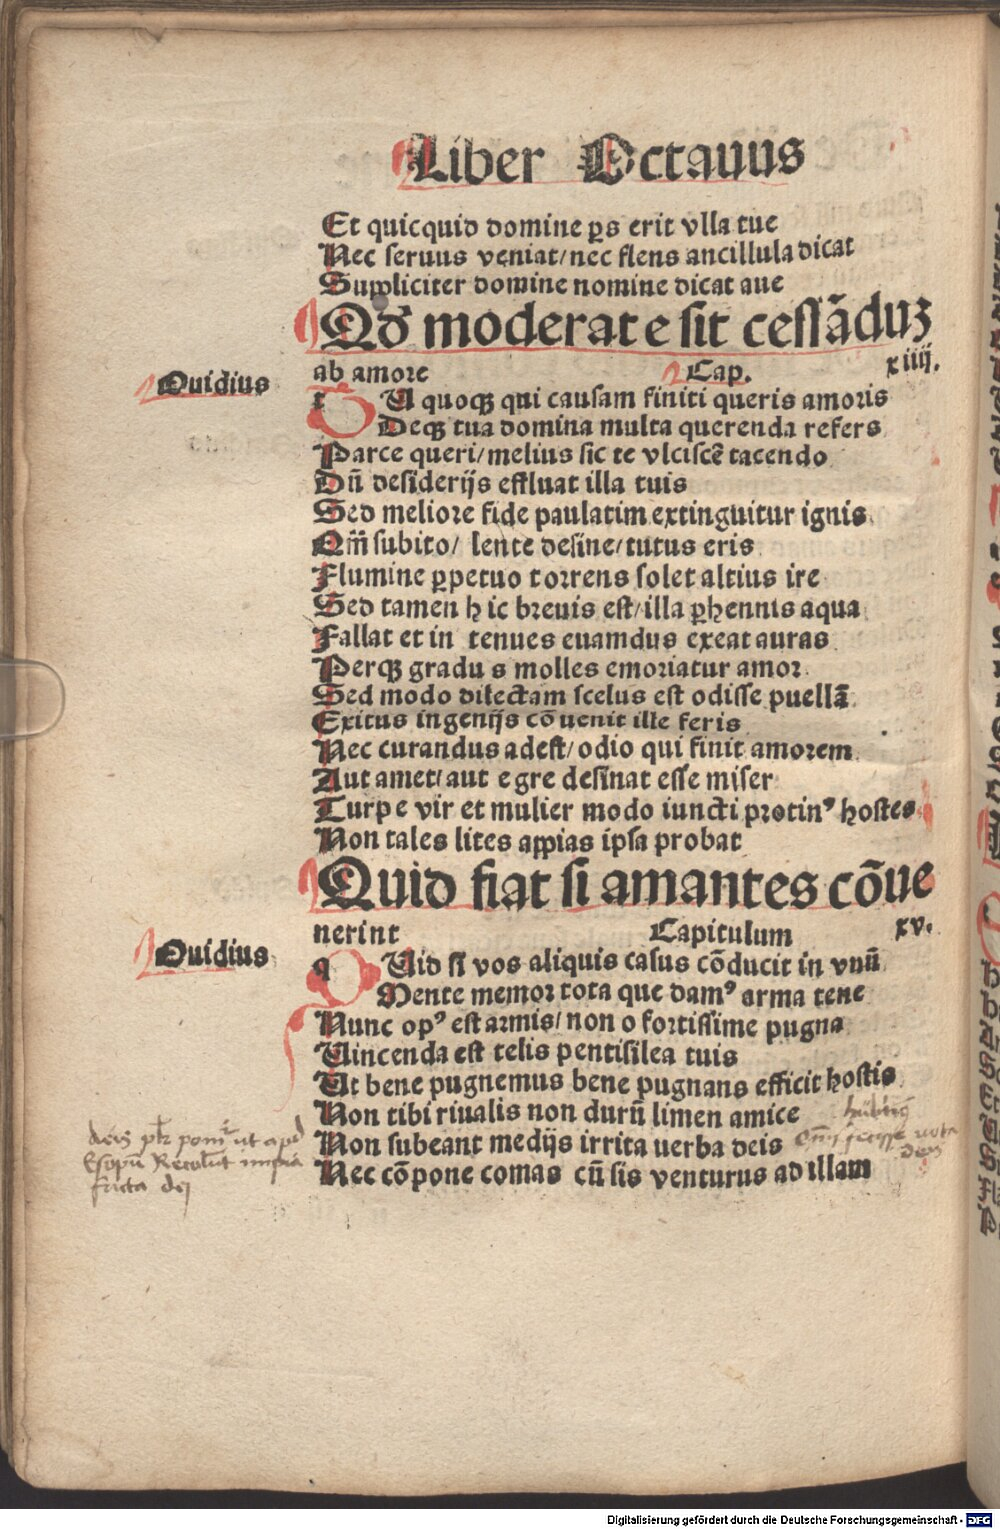 Liber Octauus
Et quicquid domine ꝑs erit vlla tue
Nec seruus veniat/nec flens ancillula dicat
Suppliciter domine nomine dicat aue
Qđ moderate sit cessãduʒ
ab amore Cap. xiiij.
Ouidius
t U quoqꝫ qui causam finiti queris amoris
Deqꝫ tua domina multa querenda refers
Parce queri/melius sic te vlciscẽ tacendo
Dũ desiderijs effluat illa tuis
Sed meliore fide paulatim extinguitur ignis
Qm̃ subito/ lente desine/tutus eris
Flumine ꝑpetuo torrens solet altius ire
Sed tamen hic breuis est/illa ꝑhennis aqua
Fallat et in tenues euamdus exeat auras
Perqꝫ gradus molles emoriatur amor
Sed modo dilectam scelus est odisse puellã
Exitus ingenijs cõuenit ille feris
Nec curandus adest/odio qui finit amorem
Aut amet/aut egre desinat esse miser
Turpe vir et mulier modo iuncti protinꝰ hostes
Non tales lites appias ipsa probat
Quid fiat si amantes cõue
nerint Capitulum xv.
Ouidius
q Uid si vos aliquis casus cõducit in vnũ
Mente memor tota que damꝰ arma tene
Nunc opꝰ est armis/non o fortissime pugna
Uincenda est telis pentisilea tuis
Ut bene pugnemus bene pugnans efficit hostis
Non tibi riualis non durũ limen amice
Non subeant medijs irrita uerba deis
Nec cõpone comas cũ sis venturus ad illam
ut apud
Esopũ
Digitalisierung gefördert durch die Deutsche Forschungsgemeinschaft - DFG